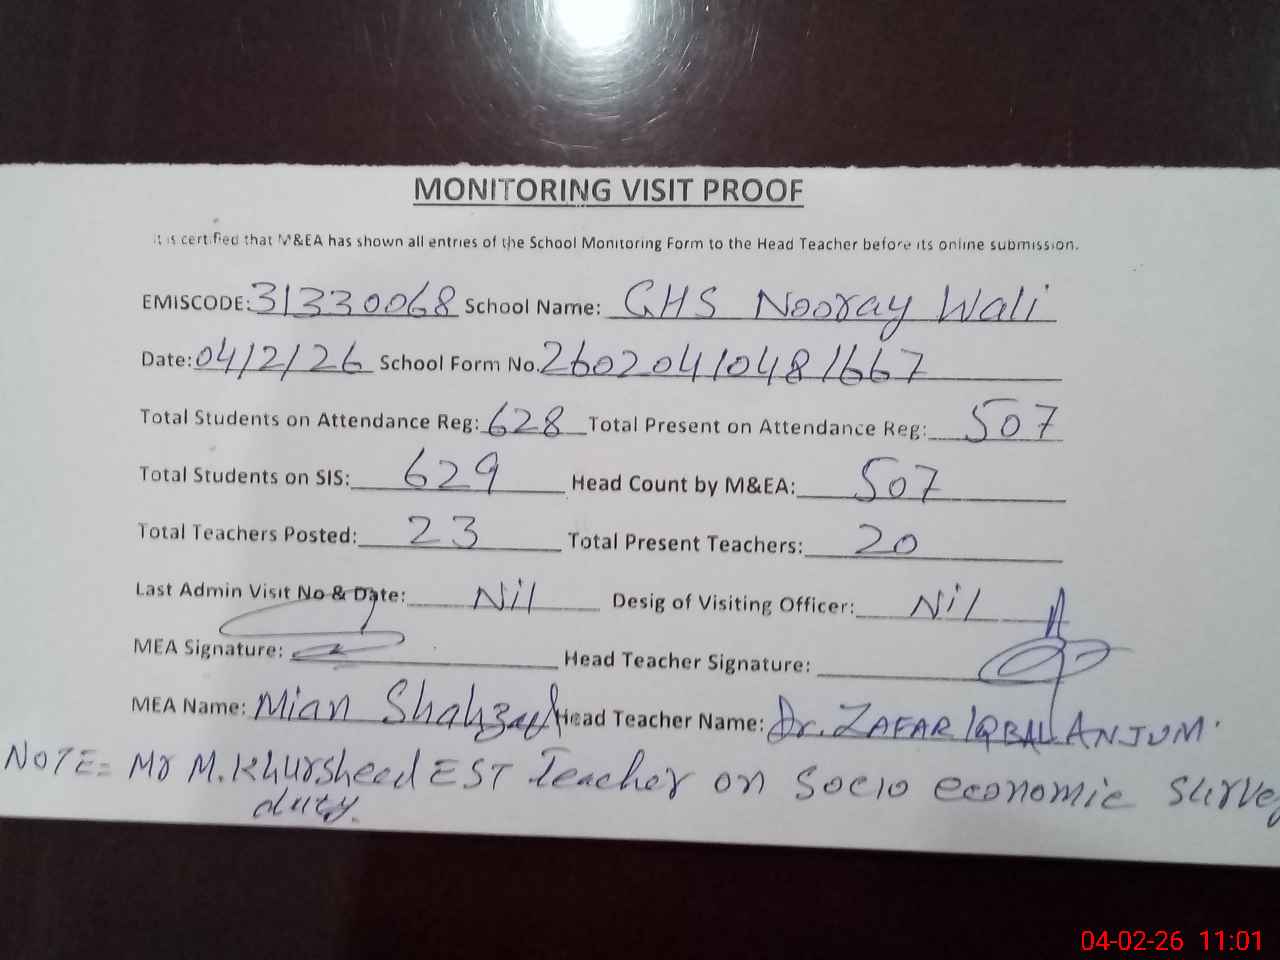 MONITORING VISIT PROOF
It is certified that M&EA has shown all entries of the School Monitoring Form to the Head Teacher before its online submission.
EMISCODE: 31330068 School Name: GHS Nooray Wali
Date: 04/2/26 School Form No. 26020410481667
Total Students on Attendance Reg: 628 Total Present on Attendance Reg: 507
Total Students on SIS: 629 Head Count by M&EA: 507
Total Teachers Posted: 23 Total Present Teachers: 20
Last Admin Visit No & Date: Nil Desig of Visiting Officer: Nil
MEA Signature: Head Teacher Signature:
MEA Name: Mian Shahzad Head Teacher Name: Dr. ZAFAR IQBAL ANJUM
NOTE= Mr M. Khursheed EST Teacher on Socio economic survey
duty.
04-02-26 11:01